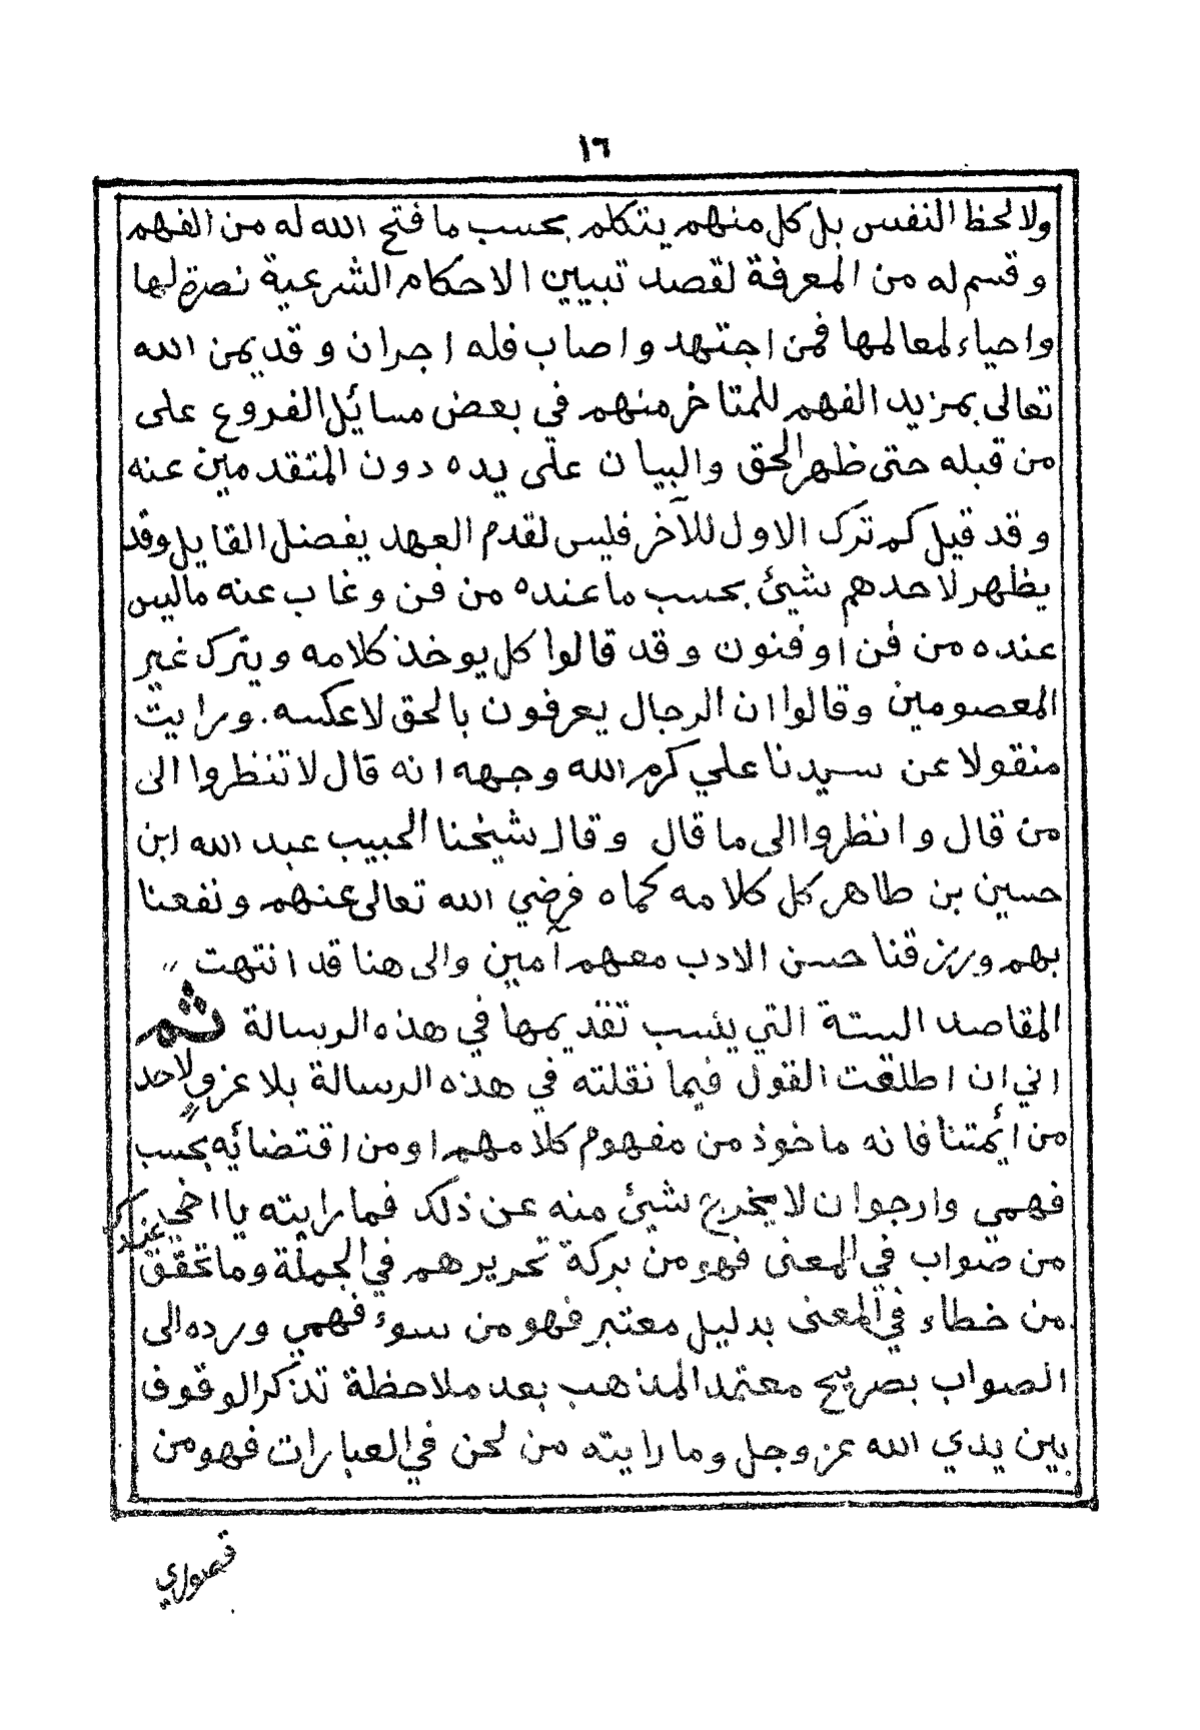 ١٦
ولا لحظ النفس بل كل منهم يتكلم بحسب ما فتح الله له من الفهم
و قسم له من المعرفة لقصد تبيين الاحكام الشرعية نصرة لها
واحياء لمعالمها فمن اجتهد واصاب فله اجران وقد يمن الله
تعالى بمزيد الفهم للمتاخر منهم في بعض مسائل الفروع على
من قبله حتى ظهر الحق والبيان على يده دون المتقدمين عنه
وقد قيل كم ترك الاول للآخر فليس لقدم العهد يفضل القايل وقد
يظهر لاحدهم شيئ بحسب ما عنده من فن وغاب عنه ما ليس
عنده من فن او فنون وقد قالوا كل يوخذ كلامه ويترك غير
المعصومين وقالوا ان الرجال يعرفون بالحق لا عكسه. ورايت
منقولا عن سيدنا علي كرم الله وجهه انه قال لا تنظروا الى
من قال وانظروا الى ما قال وقال شيخنا الحبيب عبد الله ابن
حسين بن طاهر كل كلامه كماه فرضي الله تعالى عنهم ونفعنا
بهم ورزقنا حسن الادب معهم آمين والى هنا قد انتهت "
المقاصد الستة التي ينسب تقديمها في هذه الرسالة ثم
اني ان اطلقت القول فيما نقلته في هذه الرسالة بلا عزو لاحد
من أئمتنا فانه ماخوذ من مفهوم كلامهم او من اقتضائه بحسب
فهمي وارجوا ان لا يخرج شيئ منه عن ذلك فما رايته يا اخي
من صواب في المعنى فهو من بركة تحريرهم في الجملة وما تحقق
من خطاء في المعنى بدليل معتبر فهو من سوء فهمي ورده الى
الصواب بصريح معتمد المذهب بعد ملاحظة تذكر الوقوف
بين يدي الله عز وجل وما رايته من لحن في العبارات فهو من
قصوري